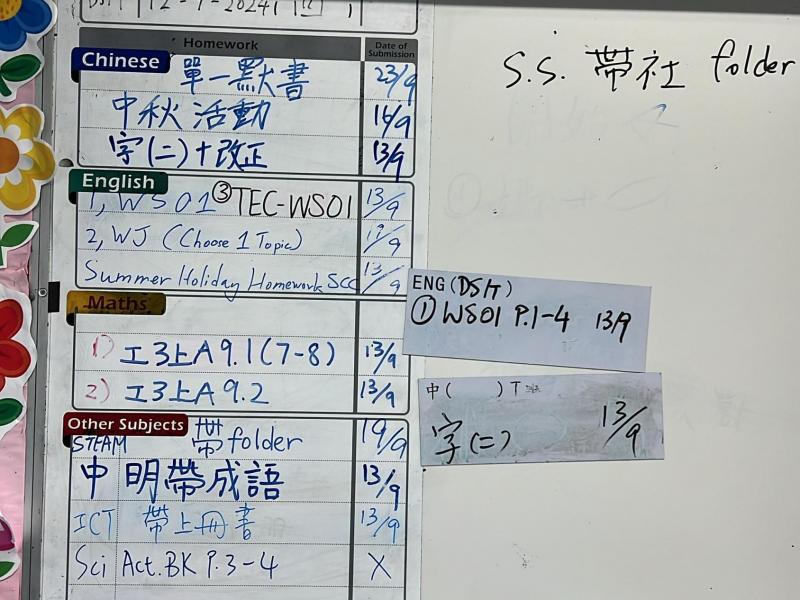 12-9-2024
Homework Date of Submission
Chinese
單一默書 23/9
中秋活動 16/9
字(二)+改正 13/9
English
1, WS01 ③TEC-WS01 13/9
2, WJ (Choose 1 Topic) 17/9
Summer Holiday Homework SCC 13/9
Maths
1) 工3上A 9.1(7-8) 13/9
2) 工3上A 9.2 13/9
Other Subjects
STEAM 帶folder 19/9
中 明帶成語 13/9
ICT 帶上冊書 13/9
Sci Act.BK P.3-4 X
S.S. 帶社 folder
ENG (DSH)
① WS01 P.1-4 13/9
中( )T
字(二) 13/9